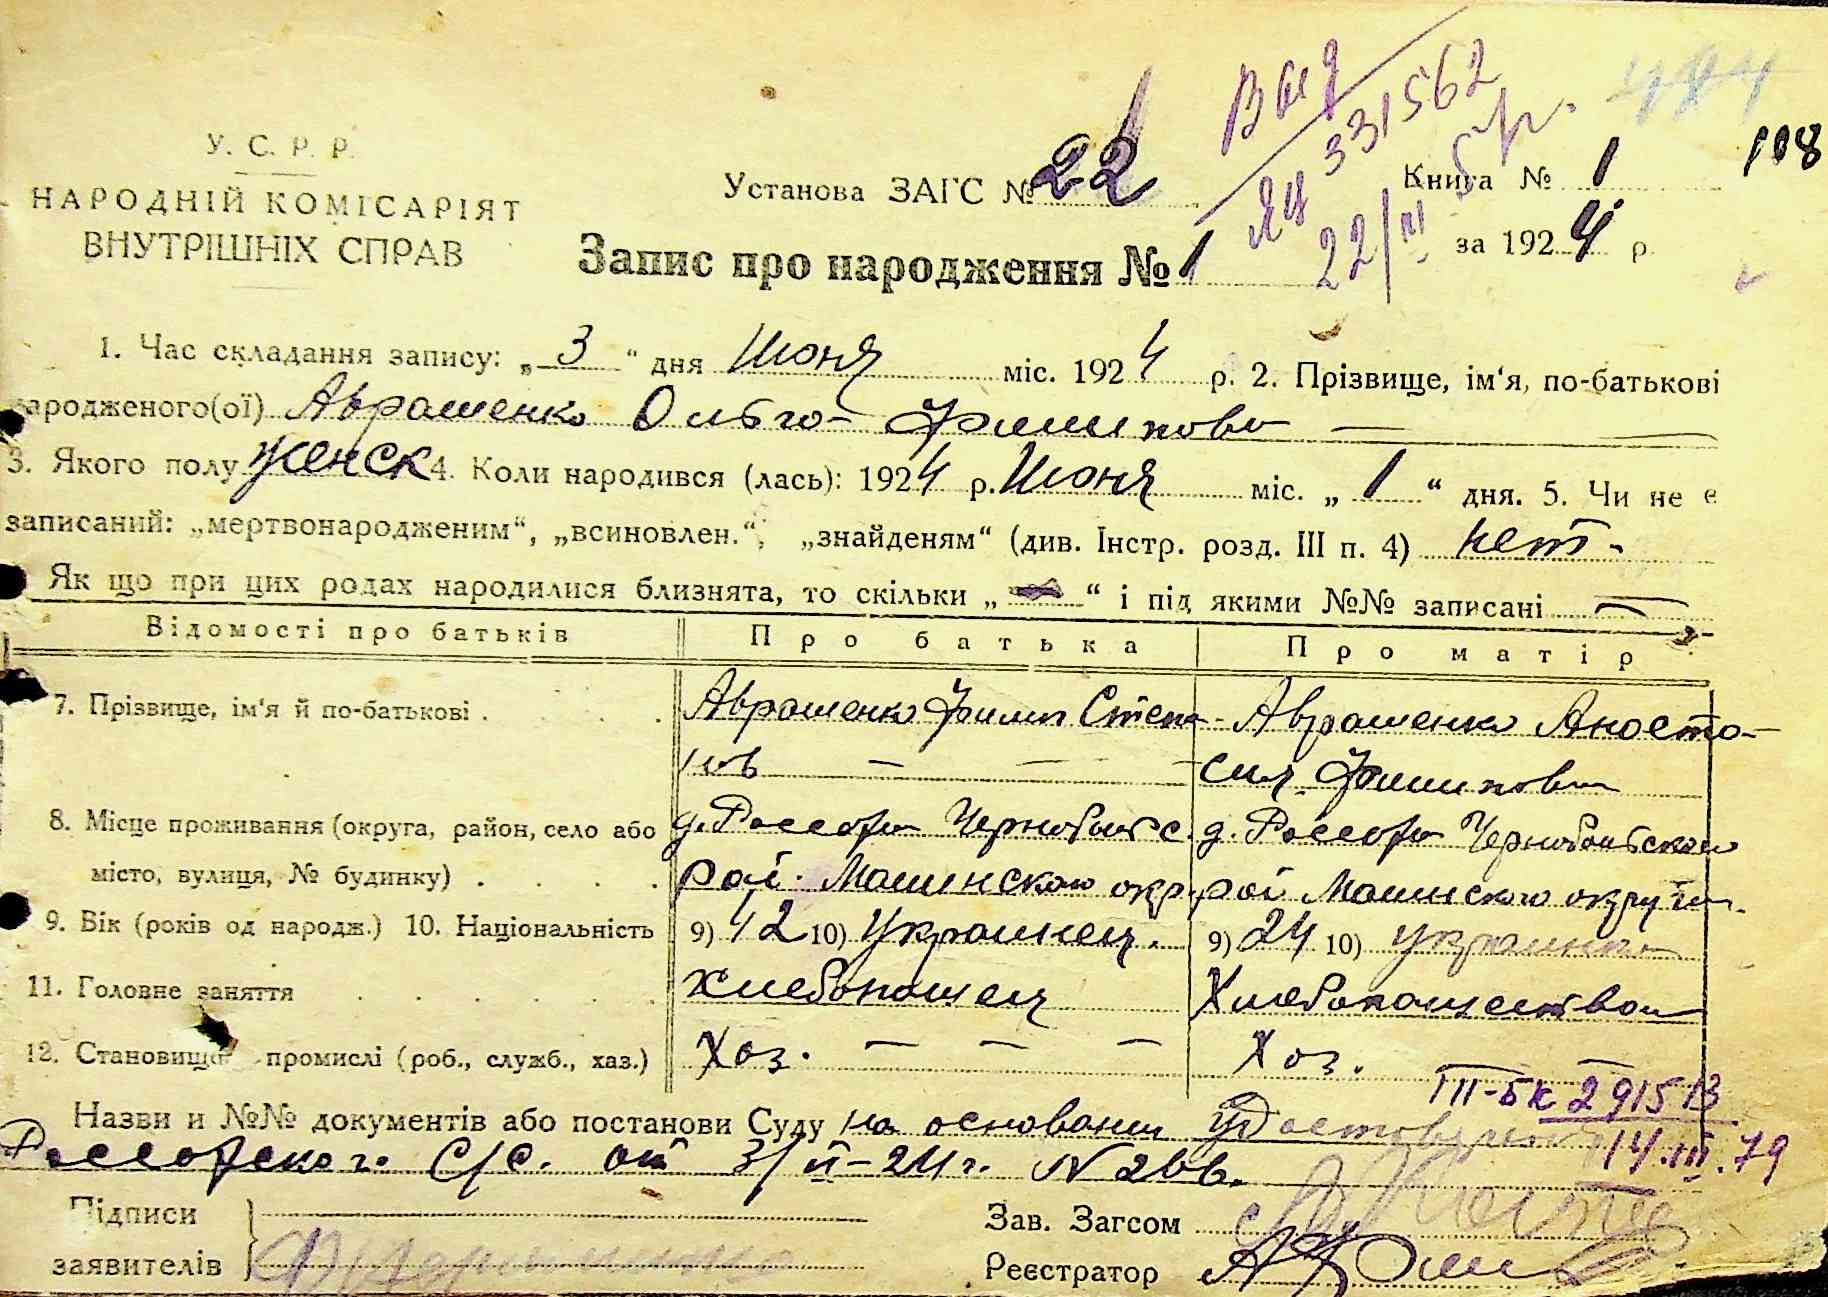 У. С. Р. Р.
НАРОДНІЙ КОМІСАРІЯТ
ВНУТРІШНІХ СПРАВ
Установа ЗАГС № 22
Выд
ЯЦ 331562
22/III
5 р.
Книга № 1
за 1924 р.
108
Запис про народження № 1
1. Час складання запису: „3“ дня Июня міс. 1924 р. 2. Прізвище, ім‘я, по-батькові
народженого(ої) Аврашенко Ольга Филипова
3. Якого полу женск 4. Коли народився (лась): 1924 р. Июня міс. „1“ дня. 5. Чи не є
записаний: „мертвонародженим“, „всиновлен.“, „знайденям“ (див. Інстр. розд. III п. 4) нет.
Як що при цих родах народилися близнята, то скільки „ “ і під якими №№ записані
Відомості про батьків Про батька Про матір
7. Прізвище, ім‘я й по-батькові . . . . Аврашенко Филип Степа- Аврашенко Анаста-
нов сия Филипова
8. Місце проживання (округа, район, село або д. Рассоха Чернобаьс. д. Рассоха Чернобаьского
місто, вулиця, № будинку) . . . . рай. окр. рай округи.
9. Вік (років од народж.) 10. Національність 9) 42 10) Украинец. 9) 24 10) украинка
11. Головне заняття . . . . . Хлебопашец Хлебопашеством
12. Становище промислі (роб., служб., хаз.) Хоз. Хоз.
III-БК 291513
14.III.79
Назви и №№ документів або постанови Суду на основании удостоверения
Рассохского С/С. от 3/VI-24 г. N 266.
Підписи
заявителів
Зав. Загсом
Реєстратор